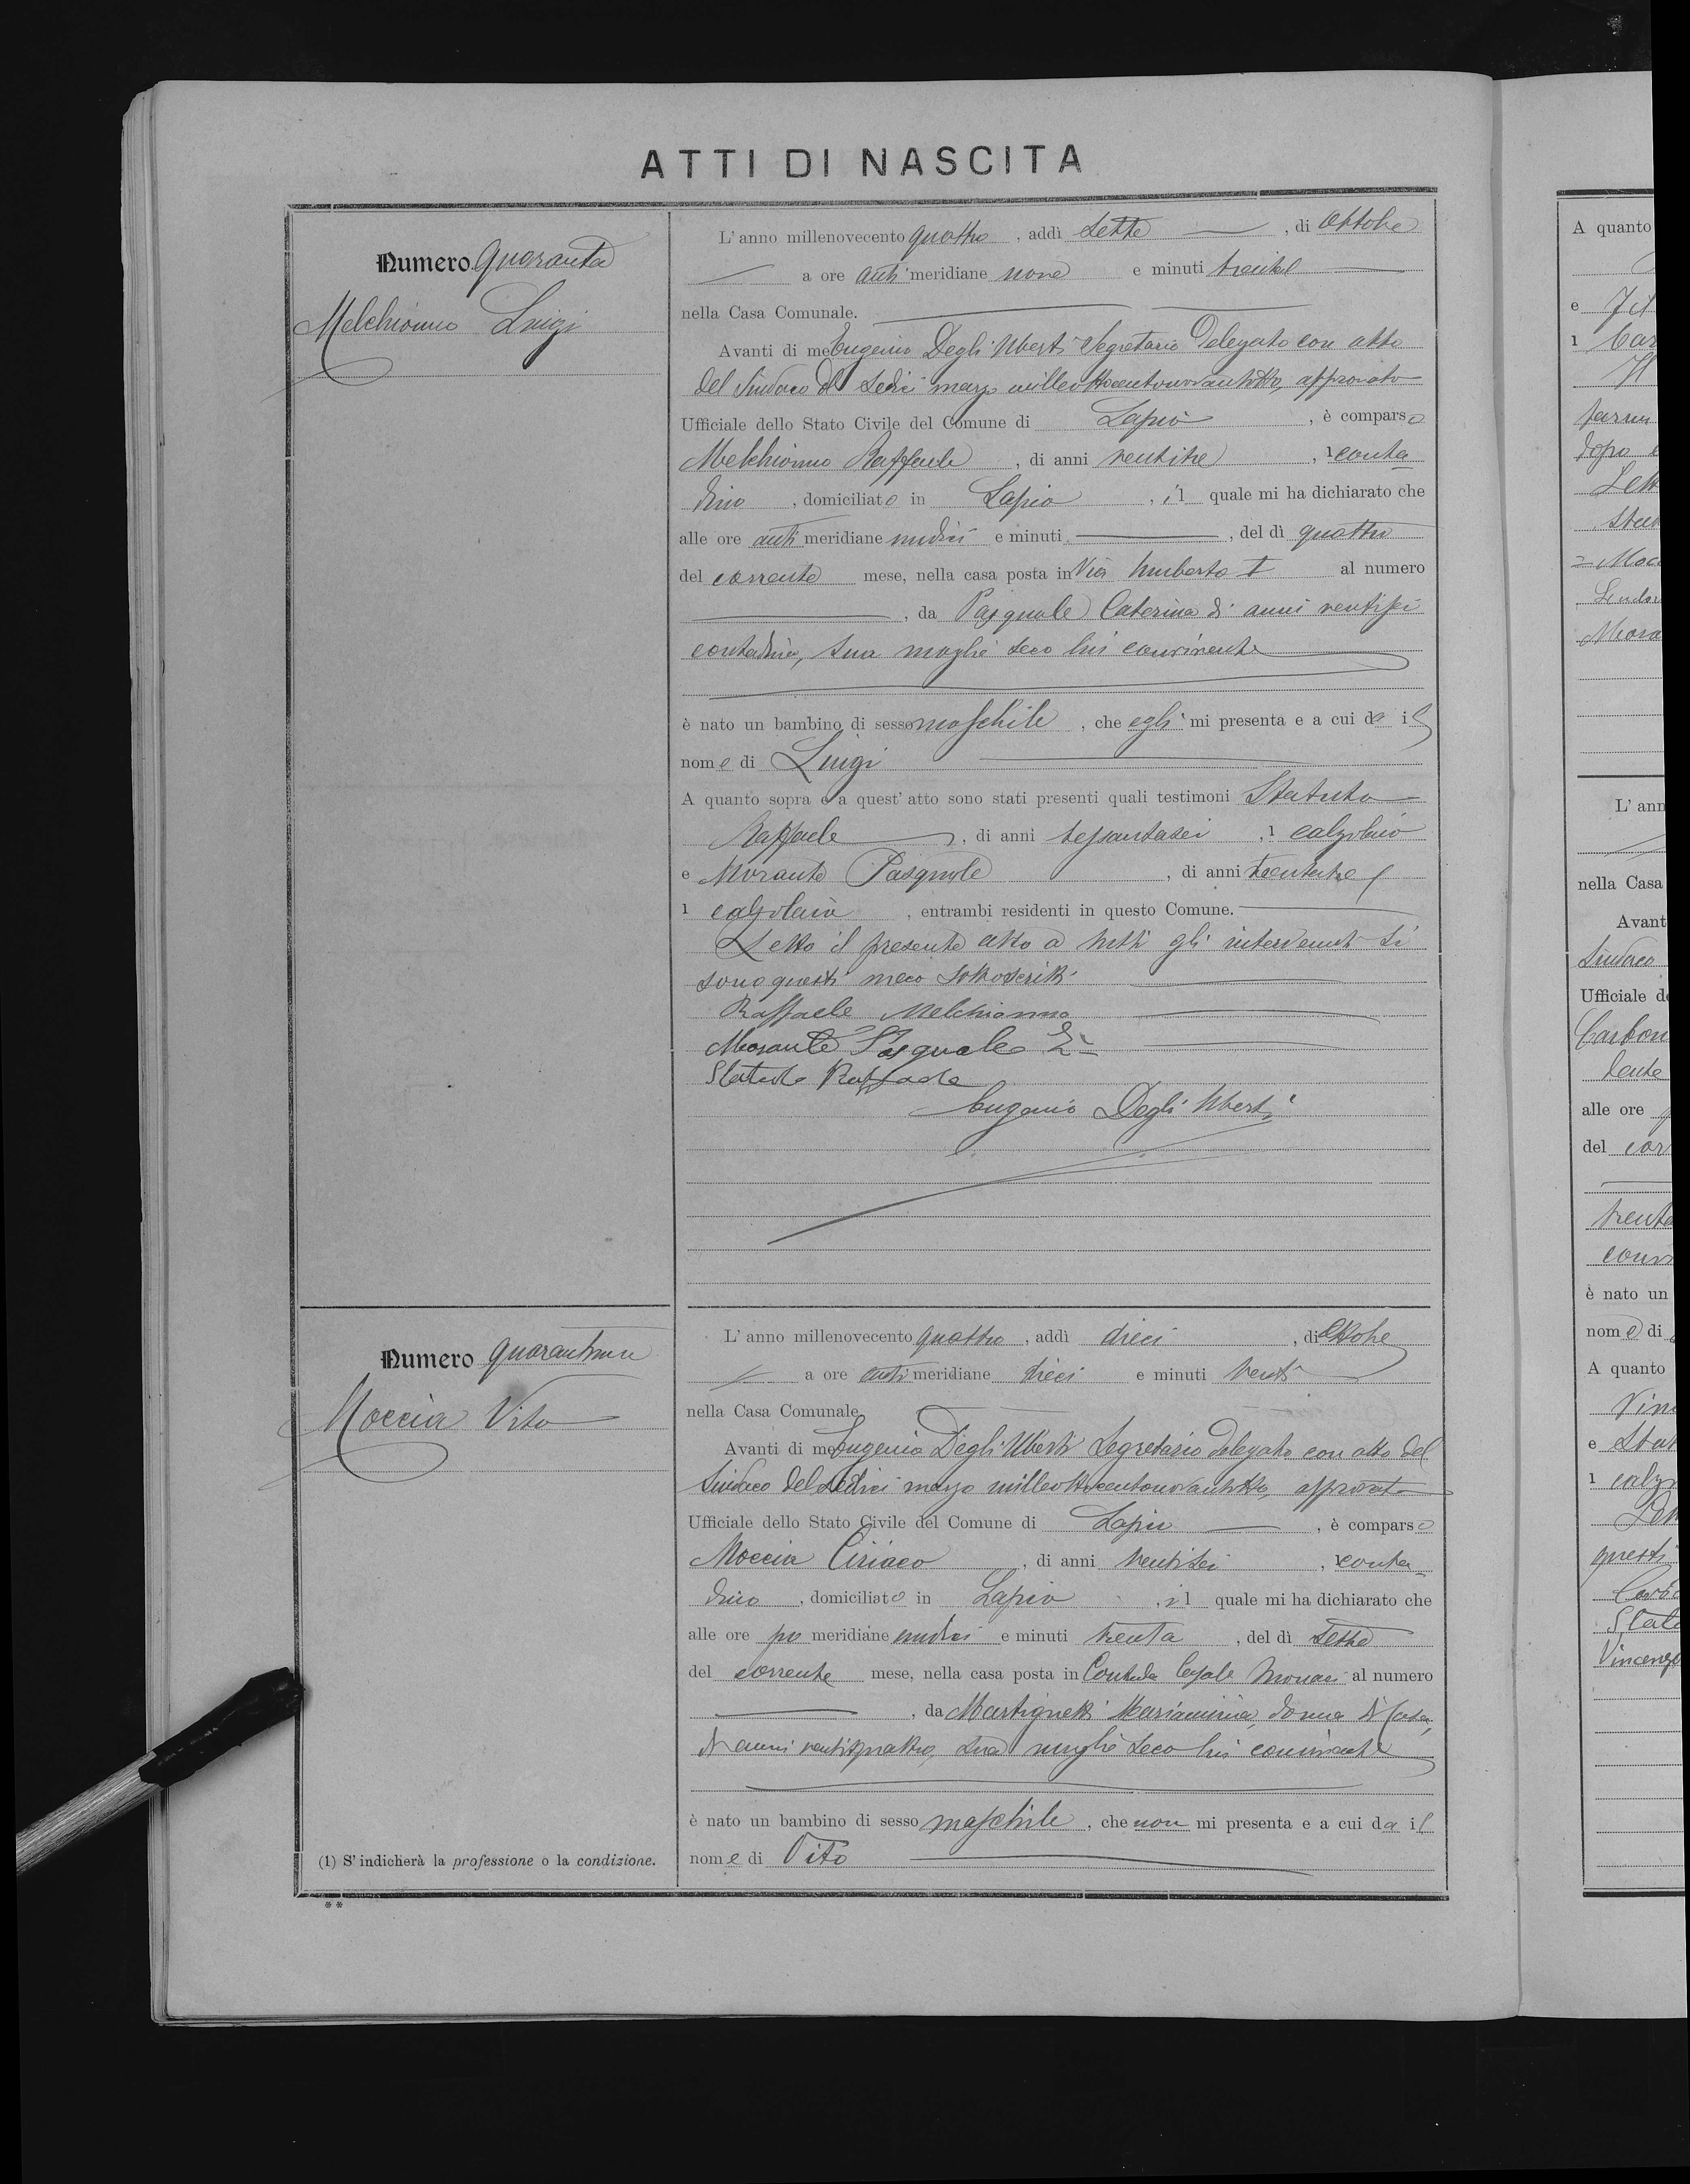 ATTI DI NASCITA
Numero quaranta
Melchionno Luigi
L'anno millenovecento quattro, addì sette, di Ottobre
a ore antimeridiane nove e minuti trenta
nella Casa Comunale.
Avanti di me Eugenio Degli Uberti Segretario Delegato con atto
del Sindaco del sedici marzo milleottocentonovantotto, approvato
Ufficiale dello Stato Civile del Comune di Lapio, è comparso
Melchionno Raffaele, di anni ventitre, 1 conta
dino, domiciliato in Lapio, il quale mi ha dichiarato che
alle ore antimeridiane undici e minuti, del dì quattro
del corrente mese, nella casa posta in Via Umberto I al numero
, da Pasquale Caterina di anni
contadina, sua moglie seco lui convivente
è nato un bambino di sesso maschile, che egli mi presenta e a cui da il
nome di Luigi
A quanto sopra e a quest'atto sono stati presenti quali testimoni Statuto
Raffaele, di anni sessantasei, 1 calzolaio
e Morante Pasquale, di anni trentatre
1 calzolaio, entrambi residenti in questo Comune.
Letto il presente atto a tutti gli intervenuti si
sono questi meco sottoscritti
Raffaele Melchionno
Morante Pasquale
Statuto Raffaele
Eugenio Degli Uberti
Numero quarantuno
Moccia Vito
L'anno millenovecento quattro, addì dieci, di Ottobre
a ore antimeridiane dieci e minuti venti
nella Casa Comunale.
Avanti di me Eugenio Degli Uberti Segretario delegato con atto del
Sindaco del sedici marzo milleottocentonovantotto, approvato
Ufficiale dello Stato Civile del Comune di Lapio, è comparso
Moccia Ciriaco, di anni ventisei, 1 conta
dino, domiciliato in Lapio, il quale mi ha dichiarato che
alle ore pomeridiane undici e minuti trenta, del dì sette
del corrente mese, nella casa posta in Contrada Casale Monaci al numero
, da Martignetti Mariannina, donna di casa,
di anni ventiquattro, sua moglie seco lui convivente
è nato un bambino di sesso maschile, che non mi presenta e a cui da il
nome di Vito
(1) S'indicherà la professione o la condizione.
**
A quanto
e
1
dopo
Mora
L'ann
nella Casa
Avant
Sindaco
Ufficiale d
Carbon
dente
alle ore
del cor
trenta
conv
è nato un
nome di
A quanto
Vin
e Stat
1 calz
questi
Stat
Vincenzo